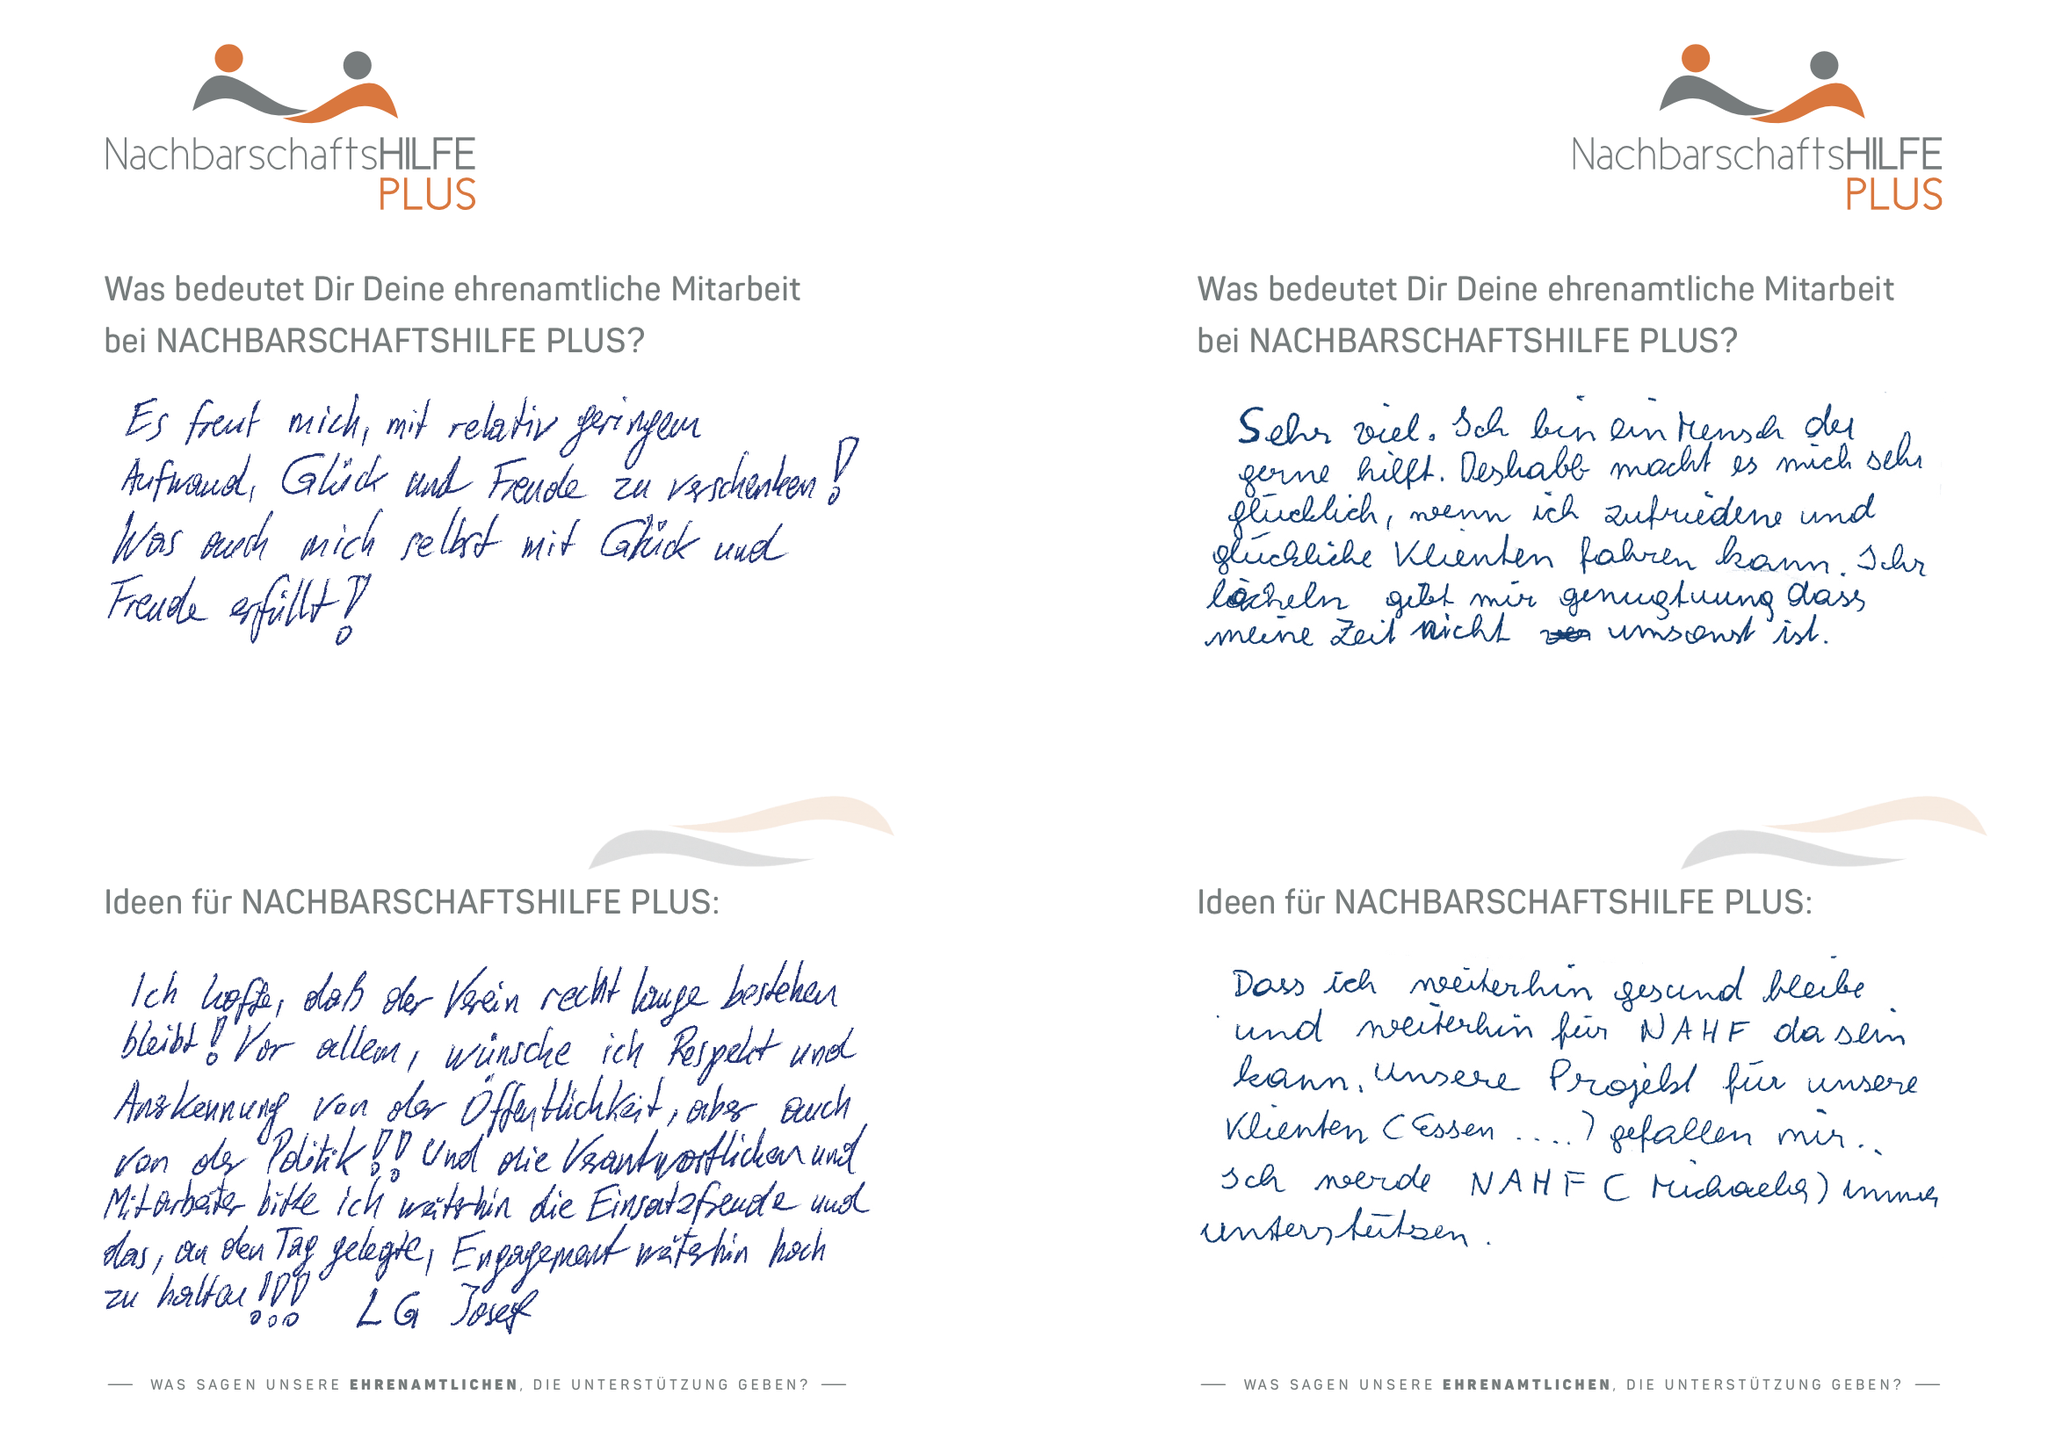 NachbarschaftsHILFE
PLUS
Was bedeutet Dir Deine ehrenamtliche Mitarbeit
bei NACHBARSCHAFTSHILFE PLUS?
Es freut mich, mit relativ geringem
Aufwand, Glück und Freude zu verschenken!
Was auch mich selbst mit Glück und
Freude erfüllt!
Ideen für NACHBARSCHAFTSHILFE PLUS:
Ich hoffe, daß der Verein recht lange bestehen
bleibt! Vor allem, wünsche ich Respekt und
Anerkennung von der Öffentlichkeit, aber auch
von der Politik!! Und die Verantwortlichen und
Mitarbeiter bitte ich weiterhin die Einsatzfreude und
das, an den Tag gelegte, Engagement weiterhin hoch
zu halten!!! LG Josef
WAS SAGEN UNSERE EHRENAMTLICHEN, DIE UNTERSTÜTZUNG GEBEN?
NachbarschaftsHILFE
PLUS
Was bedeutet Dir Deine ehrenamtliche Mitarbeit
bei NACHBARSCHAFTSHILFE PLUS?
Sehr viel. Ich bin ein Mensch der
gerne hilft. Deshalb macht es mich sehr
glücklich, wenn ich zufriedene und
glückliche Klienten fahren kann. Ihr
lächeln gibt mir genugtuung dass
meine Zeit nicht umsonst ist.
Ideen für NACHBARSCHAFTSHILFE PLUS:
Dass ich weiterhin gesund bleibe
und weiterhin für NAHF da sein
kann. Unsere Projekt für unsere
Klienten (Essen ....) gefallen mir..
Ich werde NAHF (Michaela) immer
unterstützen.
WAS SAGEN UNSERE EHRENAMTLICHEN, DIE UNTERSTÜTZUNG GEBEN?